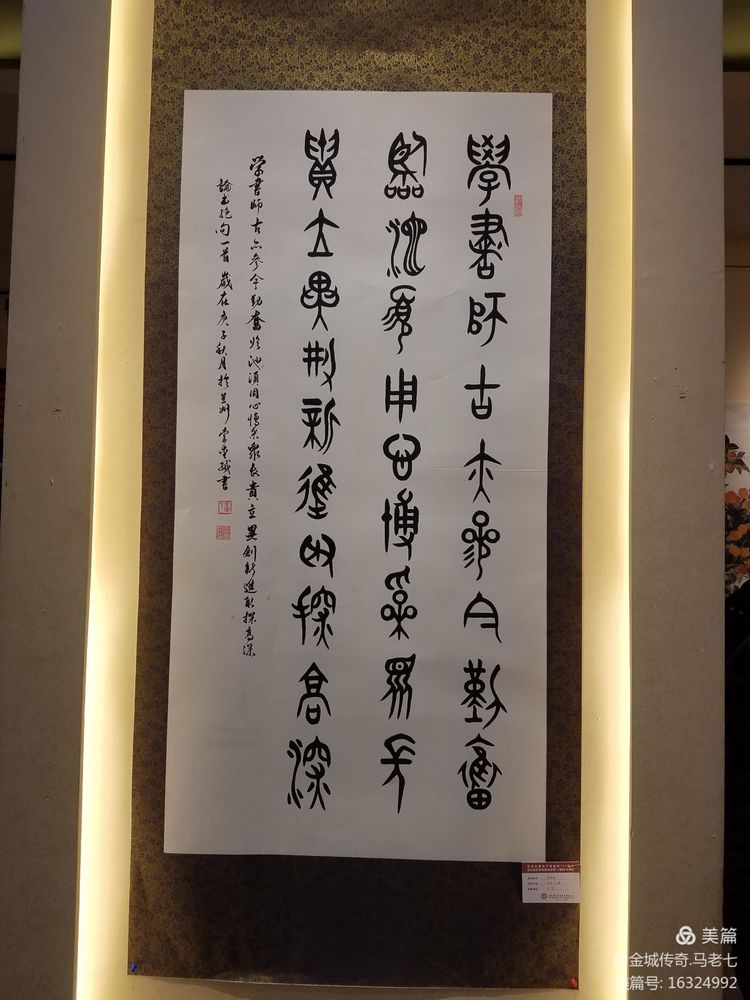 學書師古亦參今勤奮
臨池須用心博采眾長
貴立異創新進取探高深
学書師古亦参今勤奮临池須用心博采眾長貴立異創新進取探高深
論書絕句一首歲在庚子秋月於兰州常書
美篇
@金城传奇.马老七
美篇号: 16324992